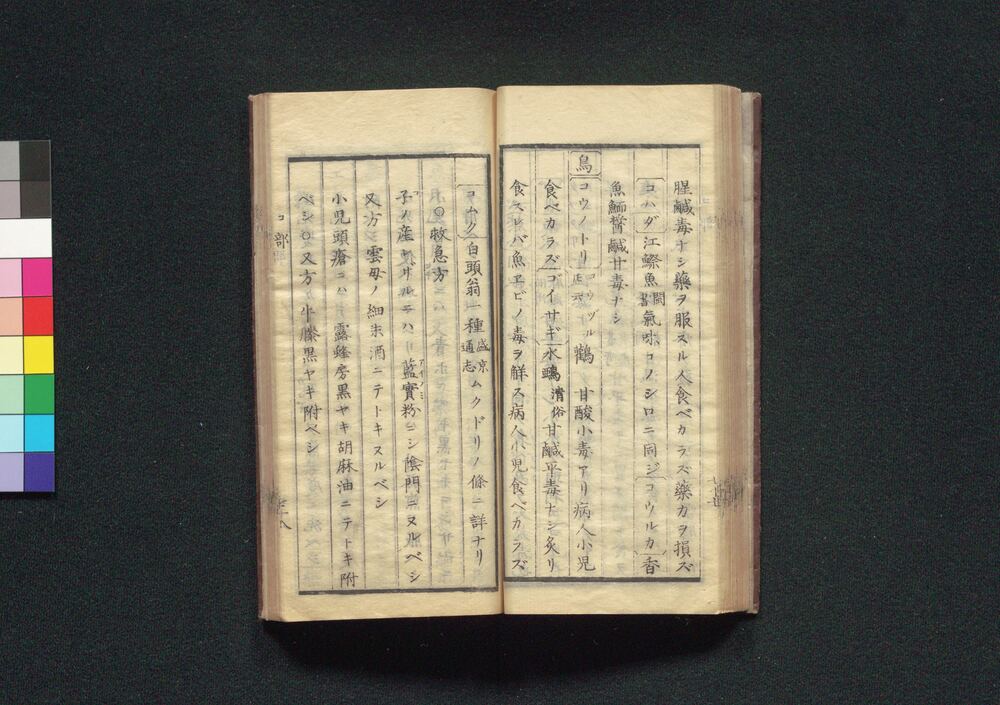 腥鹹毒ナシ藥ヲ服スル人食ベカラズ藥力ヲ損ズ
コハダ 江鰶魚 閩書 氣味コノシロニ同ジ コウルカ 香
魚鱁醤鹹甘毒ナシ
鳥 コウノトリ コウヅル 鸛 甘酸小毒アリ病人小児
食ベカラズ ゴイサギ 水鵁 清俗 甘鹹平毒ナシ炙リ
食スレバ魚エビノ毒ヲ觧ス病人小児食ベカラズ
コムク 白頭翁一種 盛京通志 ムクドリノ條ニ詳ナリ
○救急方
子ノ産
藍實粉ニシ陰門ニヌルベシ
アイノミ
又方 雲母ノ細末酒ニテトキヌルベシ
小児頭瘡ニハ 露蜂房黒ヤキ胡麻油ニテトキ附
ベシ○又方 牛膝黒ヤキ附ベシ
コ部